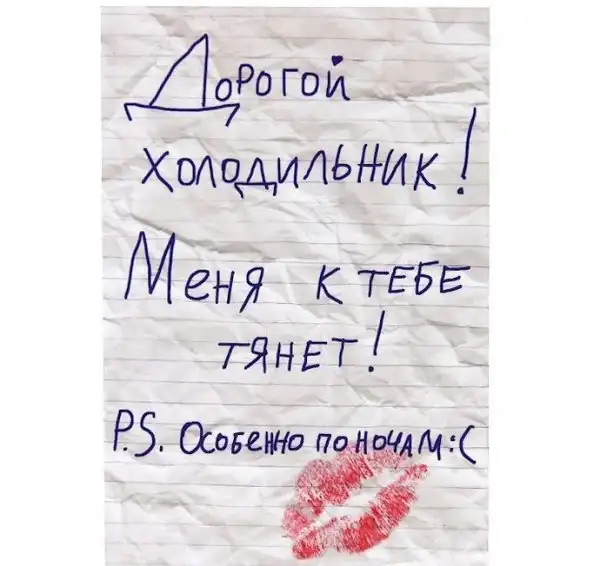 Дорогой
холодильник!
Меня к тебе
тянет!
P.S. Особенно по ночам :(